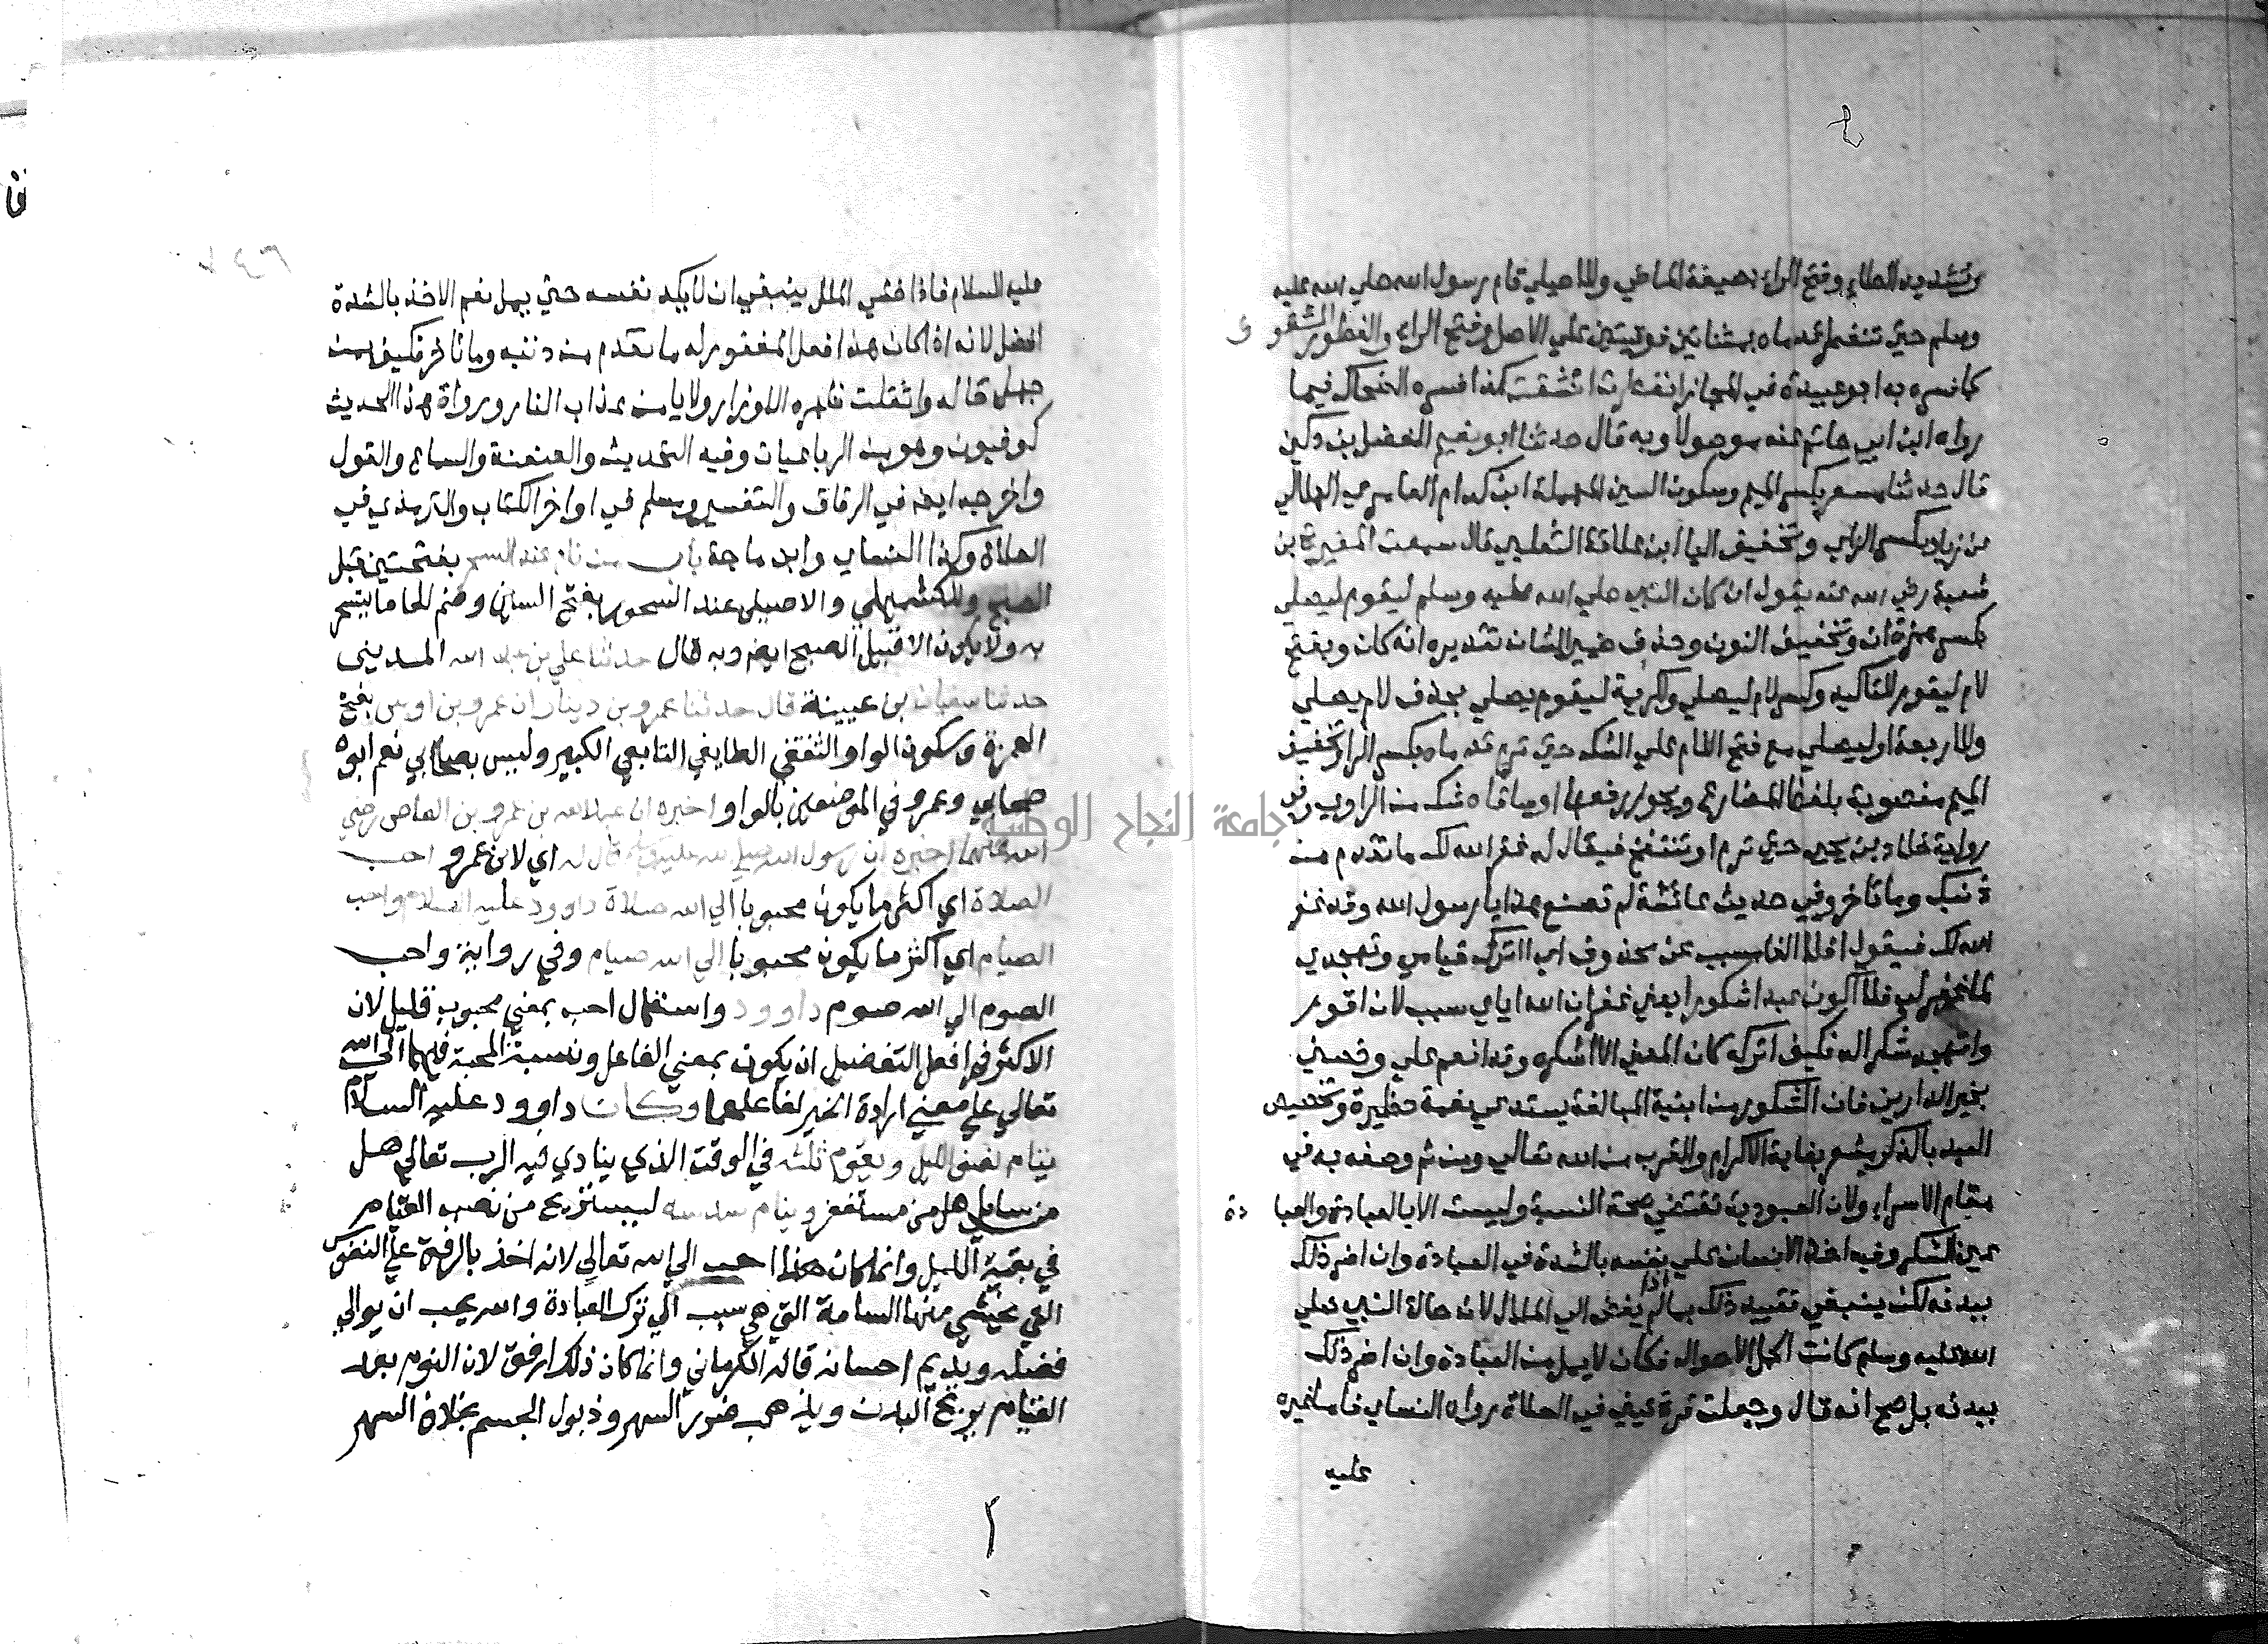 وتشديد الطاء وفتح الراء بصيغة الماضي وللاصيلي قام رسول الله صلي الله عليه
وسلم حتي تتفطر قدماه بمثناتين فوقيتين علي الاصل وفتح الراء والفطور الشقوق
كما فسره به ابو عبيدة في المجاز انفطرت انشقت كذا فسره الضحاك فيما
رواه ابن ابي حاتم عنه موصولا وبه قال حدثنا ابو نعيم الفضل بن دكين
قال حدثنا مسعر بكسر الميم وسكون السين المهملة ابن كدام العامري الهلالي
عن زياد بكسر الزاي وتخفيف اليا ابن علاقة الثعلبي قال سمعت المغيرة بن
شعبة رضي الله عنه يقول ان كان النبي صلي الله عليه وسلم ليقوم ليصلي
بكسر همزة ان وتخفيف النون وحذف ضمير الشان تقديره انه كان وبفتح
لام ليقوم للتاكيد وكسر لام ليصلي ولكريمة ليقوم يصلي بحذف لام يصلي
وللاربعة او ليصلي مع فتح اللام علي الشك حتي ترم قدماه بكسر الرا وتخفيف
الميم منصوبة بلفظ المضارع ويجوز رفعها او ساقاه شك من الراوي وفي
رواية خلاد بن يحيي حتي ترم او تنتفخ فيقال له غفر الله لك ما تقدم من
ذنبك وما تاخر وفي حديث عائشة لم تصنع هذا يا رسول الله وقد غفر
الله لك فيقول افلا الفا مسبب عن محذوف اي ااترك قيامي وتهجدي
لما غفر لي فلا اكون عبدا شكورا يعني غفران الله اياي سبب لان اقوم
واتهجد شكرا له فكيف اتركه كان المعني الا اشكره وقد انعم علي وخصني
بخير الدارين فان الشكور من ابنية المبالغة يستدعي نعمة خطيرة وتخصيص
العبد بالذكر يشعر بغاية الاكرام والقرب من الله تعالي ومن ثم وصفه به في
مقام الاسراء ولان العبودية تقتضي صحة النسبة وليست الا بالعبادة والعبادة
عين الشكر وفيه اخذ الانسان علي نفسه بالشدة في العبادة وان اضر ذلك
ببدنه لكن ينبغي تقييد ذلك بما اذا لم يفض الي الملال لان حالة النبي صلي
الله عليه وسلم كانت اكمل الاحوال فكان لا يمل من العبادة وان اضر ذلك
ببدنه بل صح انه قال وجعلت قرة عيني في الصلاة رواه النساي فاما غيره
عليه
عليه السلام فاذا خشي الملل ينبغي ان لا يكد نفسه حتي يمل نعم الاخذ بالشدة
افضل لانه اذا كان هذا فعل المغفور له ما تقدم من ذنبه وما تاخر فكيف بمن
جهل حاله واثقلت ظهره الاوزار ولا يامن عذاب النار ورواة هذا الحديث
كوفيون وهو من الرباعيات وفيه التحديث والعنعنة والسماع والقول
واخرجه ايضا في الرقاق والتفسير ومسلم في اواخر الكتاب والترمذي في
الصلاة وكذا النساي وابن ماجة باب من نام عند السحر بفتحتين قبل
الصبح وللكشميهني والاصيلي عند السحور بفتح السين وضم الحا ما يتسحر
به ولا يكون الا قبيل الصبح ايضا وبه قال حدثنا علي بن عبد الله المديني
حدثنا سفيان بن عيينة قال حدثنا عمرو بن دينار ان عمرو بن اوس بفتح
الهمزة وسكون الواو الثقفي الطايفي التابعي الكبير وليس بصحابي نعم ابوه
صحابي وعمرو في الموضعين بالواو اخبره ان عبد الله بن عمرو بن العاص رضي
الله عنهما اخبره ان رسول الله صلي الله عليه وسلم قال له اي لابن عمرو احب
الصلاة اي اكثر ما يكون محبوبا الي الله صلاة داوود عليه السلام واحب
الصيام اي اكثر ما يكون محبوبا الي الله صيام وفي رواية واحب
الصوم الي الله صوم داوود واستعمال احب بمعني محبوب قليل لان
الاكثر في افعل التفضيل ان يكون بمعني الفاعل ونسبة المحبة فيهما الي الله
تعالي علي معني ارادة الخير لفاعلهما وكان داوود عليه السلام
ينام نصف الليل ويقوم ثلثه في الوقت الذي ينادي فيه الرب تعالي هل
من سايل هل من مستغفر وينام سدسه ليستريح من نصب القيام
في بقية الليل وانما كان هذا احب الي الله تعالي لانه اخذ بالرفق علي النفوس
التي يخشي منها السامة التي هي سبب الي ترك العبادة والله يحب ان يوالي
فضله ويديم احسانه قاله الكرماني وانما كان ذلك ارفق لان النوم بعد
القيام يريح البدن ويذهب ضرر السهر وذبول الجسم بخلاف السهر
جامعة النجاح الوطنية